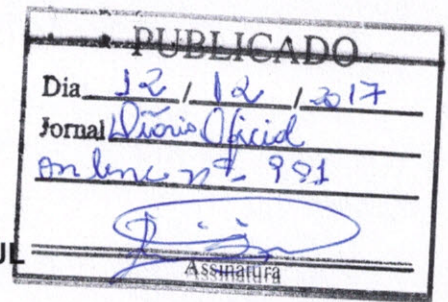 PUBLICADO
Dia 12 / 12 / 2017
Jornal Diário Oficial
on line nº 991
UL
Assinatura